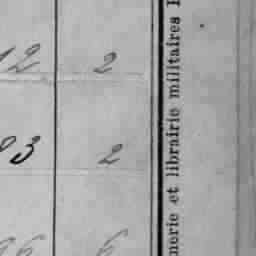 12 2
23 2
96 6
nerie et librairie militaires